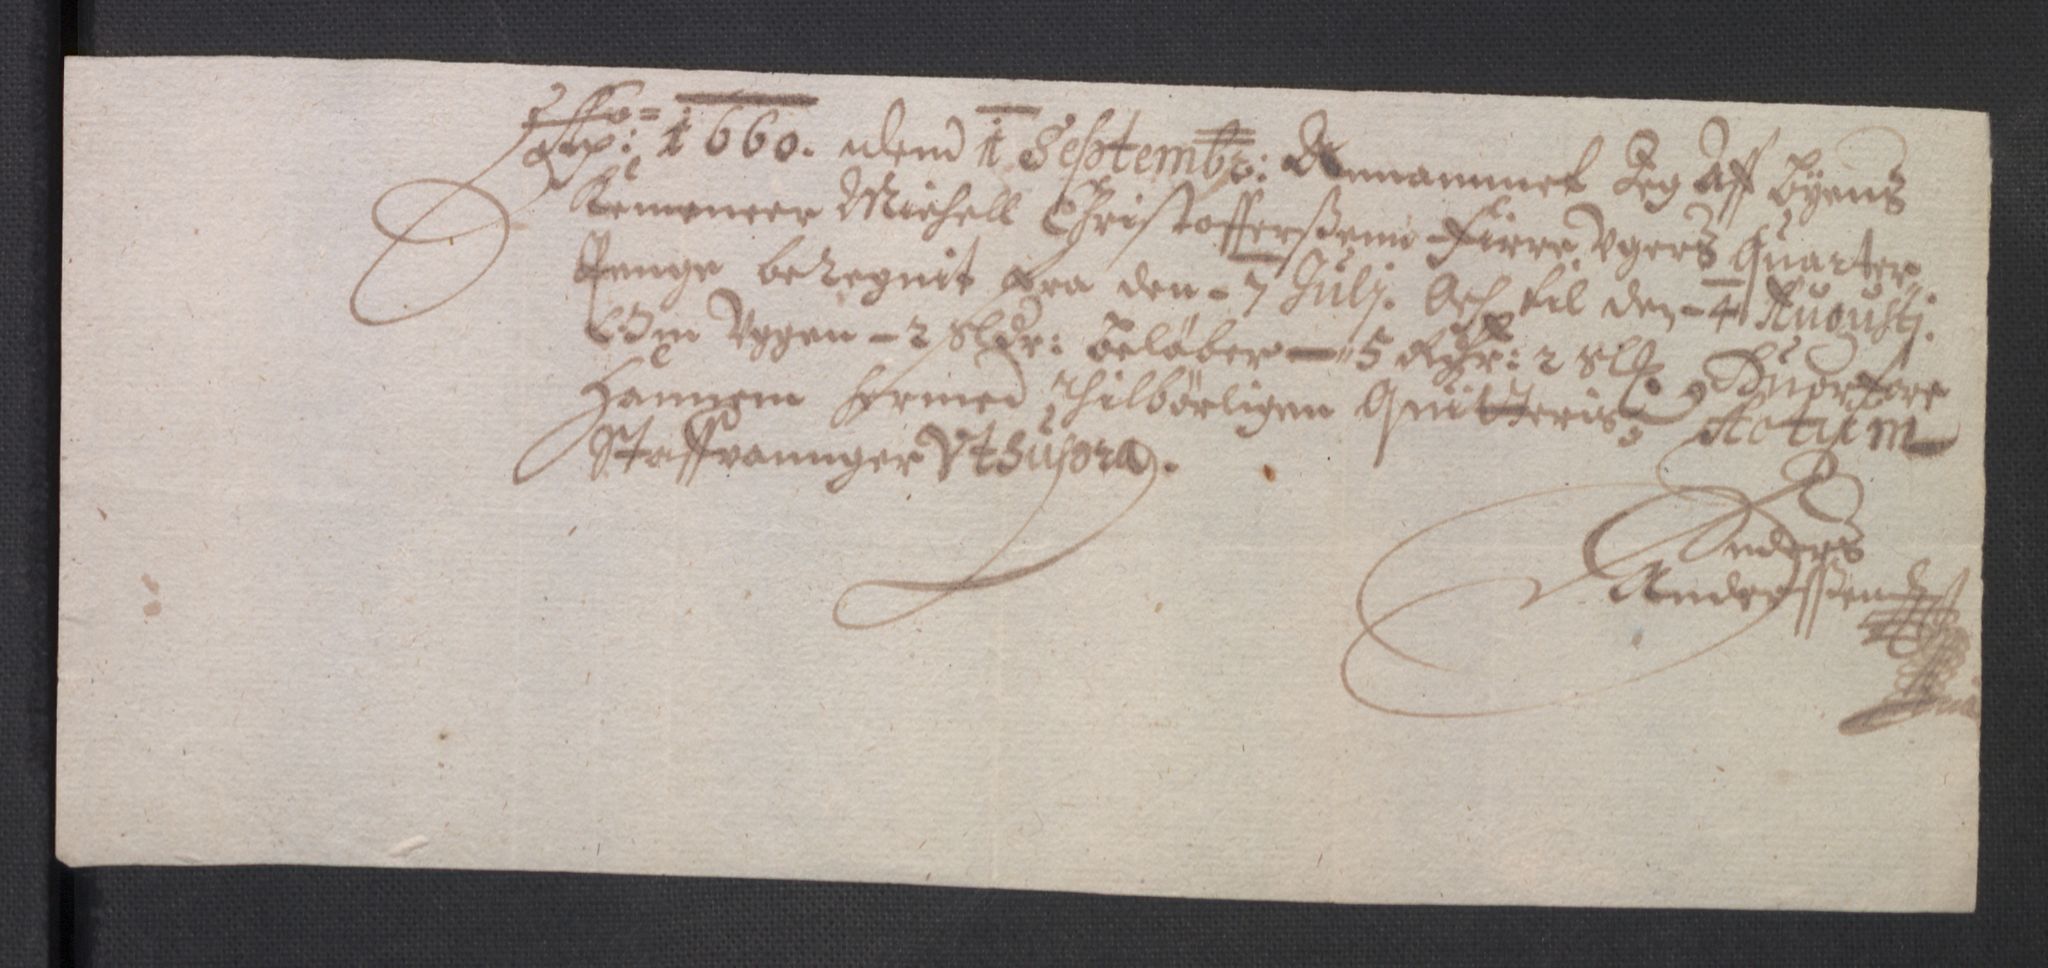 1660. dend 1 Septembr: Annammet Jeg Aff Byens
Kemener Michell Christofferßenn Firre Vgers Quarter
Penge beregnit fra den 7 Julj. Och til den 4 Augustj.
Om Vggen 2 Sldr: Beløber 5 Rdr: 2 Sld. Huorfore
Hannem hermed thilbørligen Quitteris. Actum
Staffvannger Vt Supra.
Anders
Anderßen